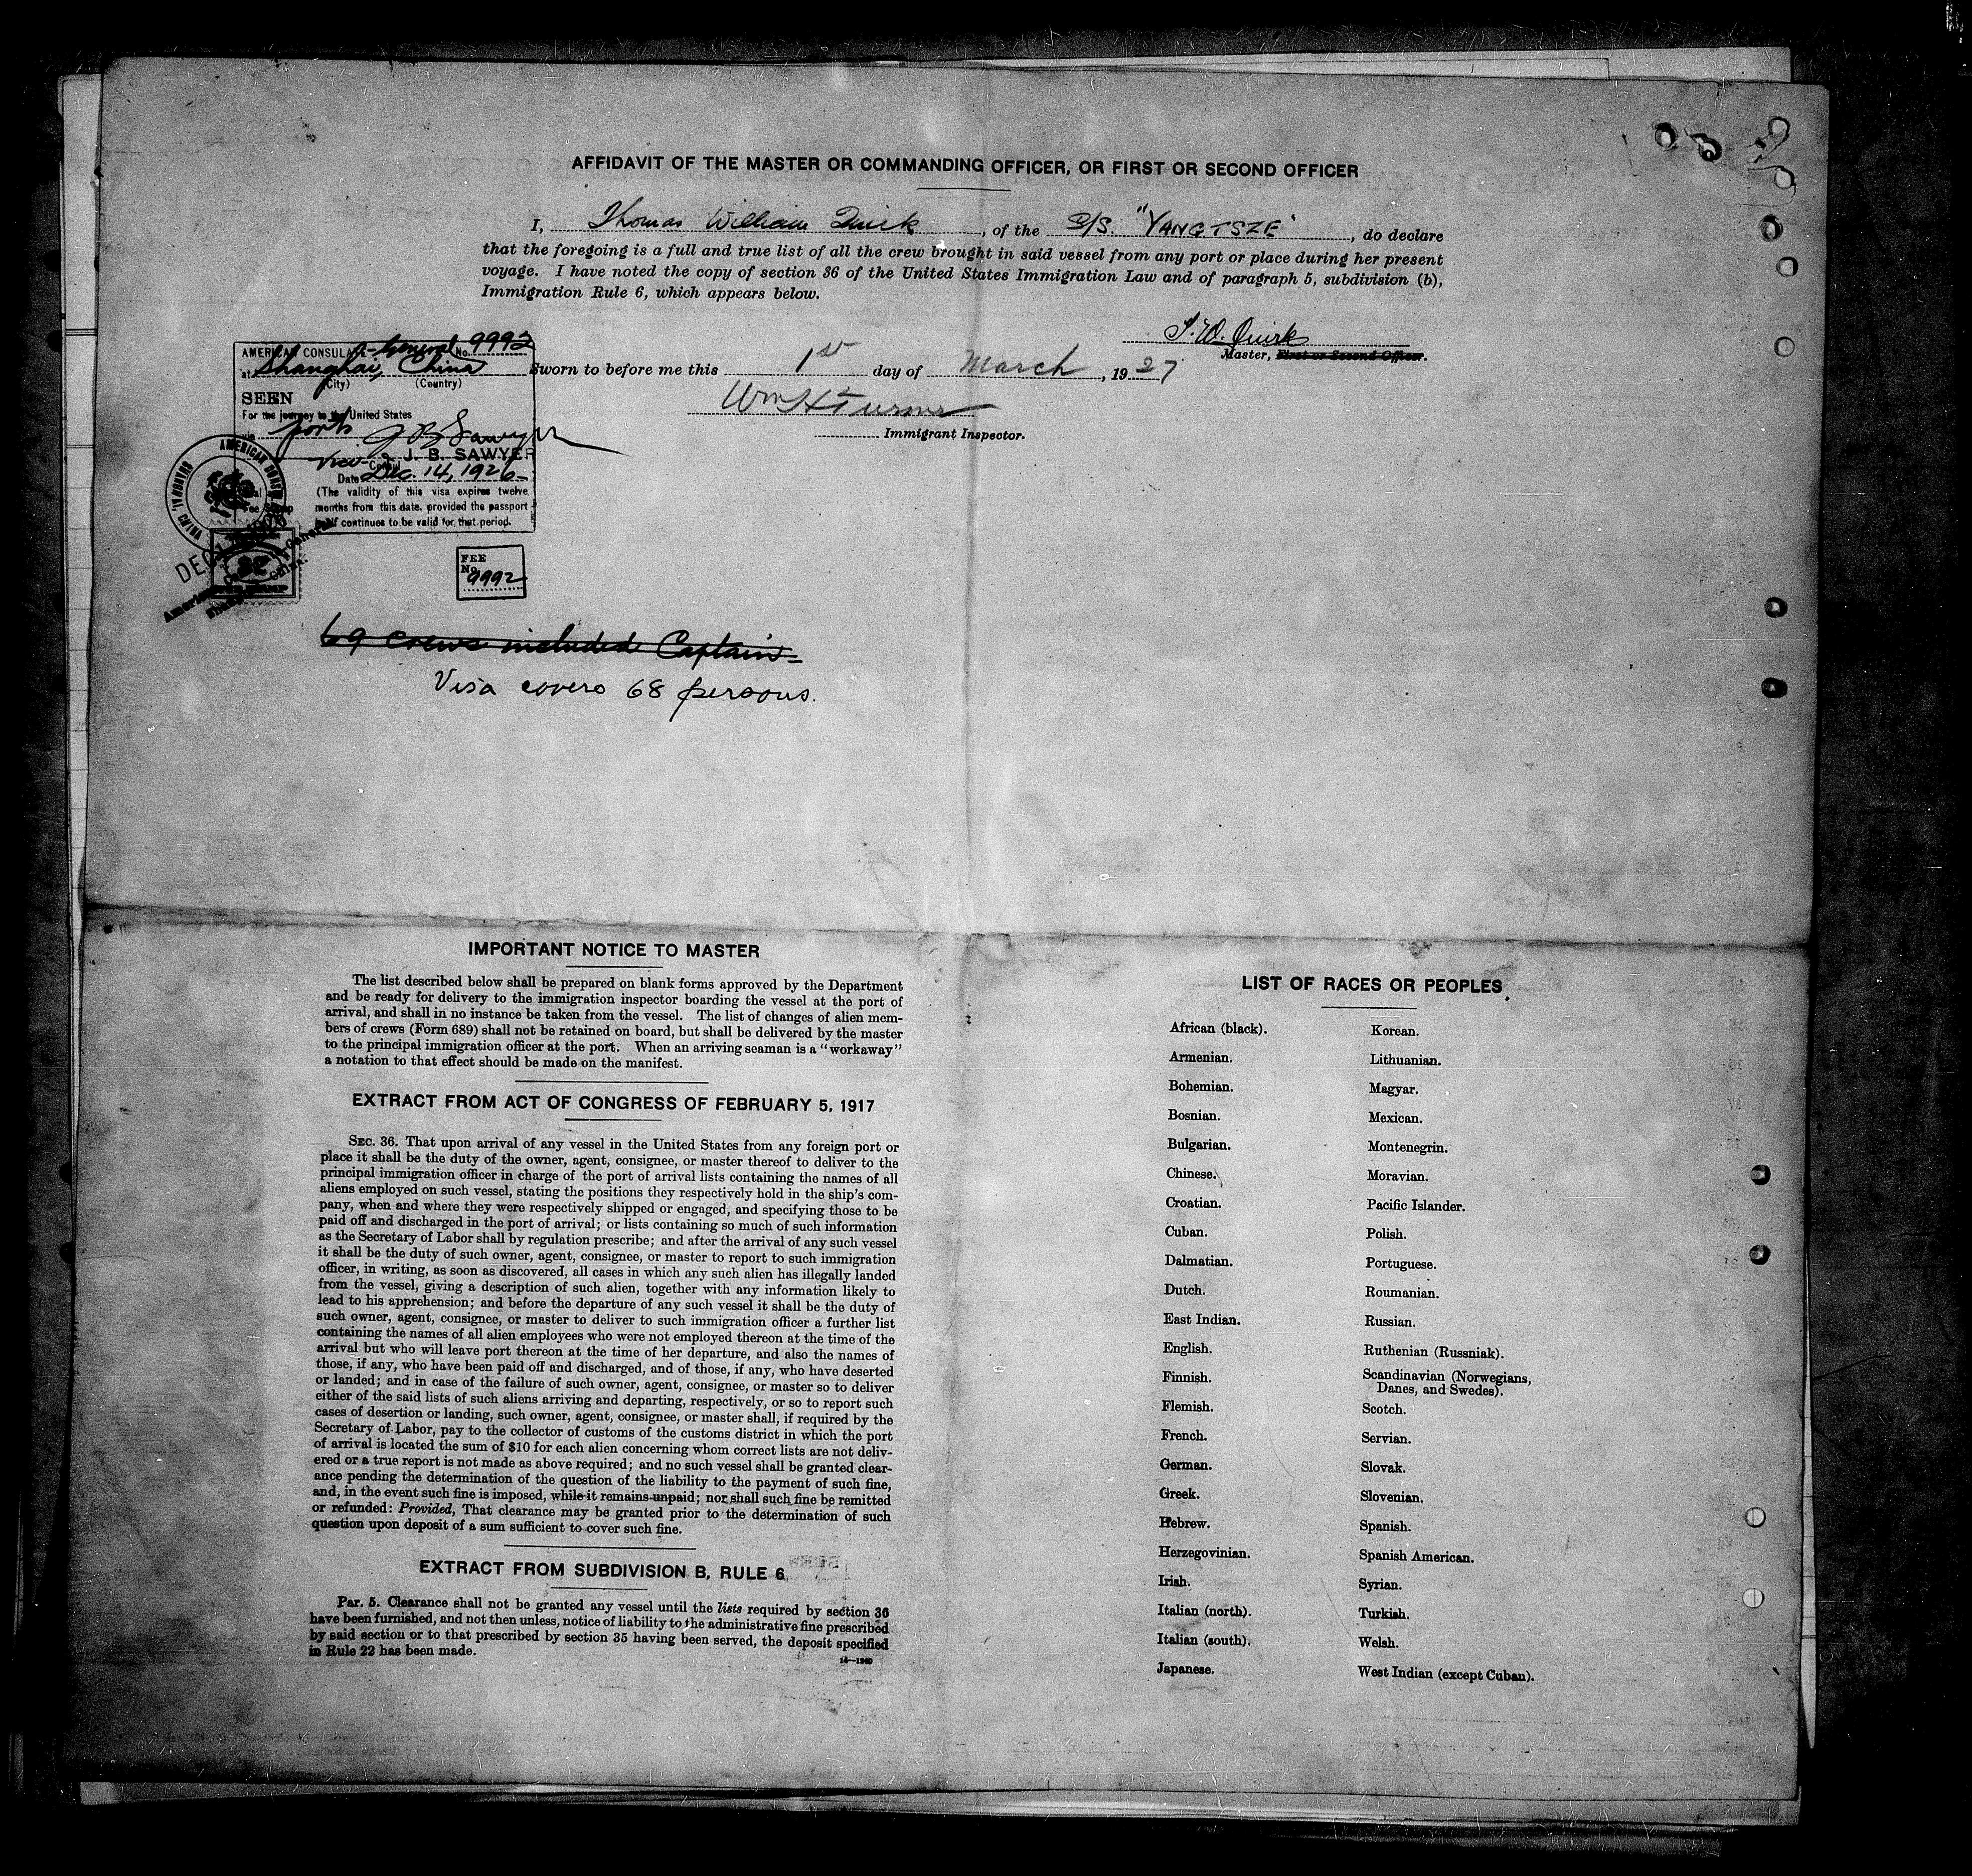 AFFIDAVIT OF THE MASTER OR COMMANDING OFFICER, OR FIRST OR SECOND OFFICER
I, Thomas William Quirk, of the S/S. "YANGTSZE", do declare
that the foregoing is a full and true list of all the crew brought in said vessel from any port or place during her present
voyage. I have noted the copy of section 36 of the United States Immigration Law and of paragraph 5, subdivision (b),
Immigration Rule 6, which appears below.
T. W. Quirk
Master, First or Second Officer.
Sworn to before me this 1st day of March, 1927
Wm H Turner
Immigrant Inspector.
AMERICAN CONSULATE General No. 9992
at Shanghai, China
(City) (Country)
SEEN
For the journey to the United States
via ports J B Sawyer
J. B. SAWYER
Vice Consul
Date Dec. 14, 1926
(The validity of this visa expires twelve
months from this date, provided the passport
itself continues to be valid for that period.
AMERICAN CONSUL
SHANGHAI, CHINA
DEC
FEE
No.
9992
69 crews included Captain
Visa covers 68 persons.
IMPORTANT NOTICE TO MASTER
The list described below shall be prepared on blank forms approved by the Department
and be ready for delivery to the immigration inspector boarding the vessel at the port of
arrival, and shall in no instance be taken from the vessel. The list of changes of alien mem-
bers of crews (Form 689) shall not be retained on board, but shall be delivered by the master
to the principal immigration officer at the port. When an arriving seaman is a "workaway"
a notation to that effect should be made on the manifest.
EXTRACT FROM ACT OF CONGRESS OF FEBRUARY 5, 1917
SEC. 36. That upon arrival of any vessel in the United States from any foreign port or
place it shall be the duty of the owner, agent, consignee, or master thereof to deliver to the
principal immigration officer in charge of the port of arrival lists containing the names of all
aliens employed on such vessel, stating the positions they respectively hold in the ship's com-
pany, when and where they were respectively shipped or engaged, and specifying those to be
paid off and discharged in the port of arrival; or lists containing so much of such information
as the Secretary of Labor shall by regulation prescribe; and after the arrival of any such vessel
it shall be the duty of such owner, agent, consignee, or master to report to such immigration
officer, in writing, as soon as discovered, all cases in which any such alien has illegally landed
from the vessel, giving a description of such alien, together with any information likely to
lead to his apprehension; and before the departure of any such vessel it shall be the duty of
such owner, agent, consignee, or master to deliver to such immigration officer a further list
containing the names of all alien employees who were not employed thereon at the time of the
arrival but who will leave port thereon at the time of her departure, and also the names of
those, if any, who have been paid off and discharged, and of those, if any, who have deserted
or landed; and in case of the failure of such owner, agent, consignee, or master so to deliver
either of the said lists of such aliens arriving and departing, respectively, or so to report such
cases of desertion or landing, such owner, agent, consignee, or master shall, if required by the
Secretary of Labor, pay to the collector of customs of the customs district in which the port
of arrival is located the sum of $10 for each alien concerning whom correct lists are not deliv-
ered or a true report is not made as above required; and no such vessel shall be granted clear-
ance pending the determination of the question of the liability to the payment of such fine,
and, in the event such fine is imposed, while it remains unpaid; nor shall such fine be remitted
or refunded: Provided, That clearance may be granted prior to the determination of such
question upon deposit of a sum sufficient to cover such fine.
EXTRACT FROM SUBDIVISION B, RULE 6
Par. 5. Clearance shall not be granted any vessel until the lists required by section 36
have been furnished, and not then unless, notice of liability to the administrative fine prescribed
by said section or to that prescribed by section 35 having been served, the deposit specified
in Rule 22 has been made.
LIST OF RACES OR PEOPLES
African (black).
Armenian.
Bohemian.
Bosnian.
Bulgarian.
Chinese.
Croatian.
Cuban.
Dalmatian.
Dutch.
East Indian.
English.
Finnish.
Flemish.
French.
German.
Greek.
Hebrew.
Herzegovinian.
Irish.
Italian (north).
Italian (south).
Japanese.
Korean.
Lithuanian.
Magyar.
Mexican.
Montenegrin.
Moravian.
Pacific Islander.
Polish.
Portuguese.
Roumanian.
Russian.
Ruthenian (Russniak).
Scandinavian (Norwegians,
Danes, and Swedes).
Scotch.
Servian.
Slovak.
Slovenian.
Spanish.
Spanish American.
Syrian.
Turkish.
Welsh.
West Indian (except Cuban).